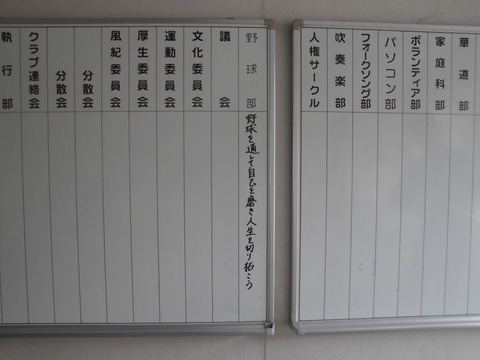 華道部
家庭科部
ボランティア部
パソコン部
フォークソング部
吹奏楽部
人権サークル
野球部
野球を通して自己を磨き人生を切り拓こう
議会
文化委員会
運動委員会
厚生委員会
風紀委員会
分散会
分散会
クラブ連絡会
執行部